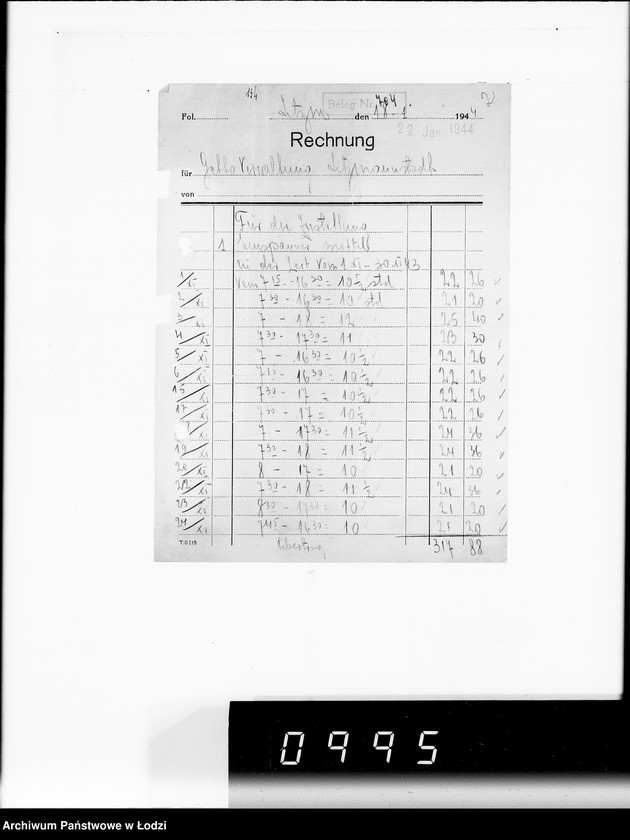 194
Beleg Nr. 704
7
Fol. Litzm den 18.1. 1944
22. Jan. 1944
Rechnung
für Getto Verwaltung Litzmannstadt
von
Für die Zustellung
1 Einspänner mittell
in der Zeit vom 1 XI – 30 XI 43
1/XI vom 7 15 – 16 30 = 10 1/2 std 22 26
2/XI 7 30 – 16 30 = 10 std 21 20
3/XI 7 – 18 = 12 25 40
4/XI 7 30 – 17 30 = 11 23 30
5/XI 7 – 16 30 = 10 1/2 22 26
6/XI 7 15 – 16 30 = 10 1/2 22 26
15/XI 7 30 – 17 = 10 1/2 22 26
17/XI 7 30 – 17 = 10 1/2 22 26
7 – 17 30 = 11 1/2 24 36
19/XI 7 30 – 18 = 11 1/2 24 36
20/XI 8 – 17 = 10 21 20
22/XI 7 30 – 18 = 11 1/2 24 36
23/XI 8 30 – 17 30 = 10 21 20
24/XI 7 45 – 16 30 = 10 21 20
T/0113 Übertrag 317 88
0995
Archiwum Państwowe w Łodzi